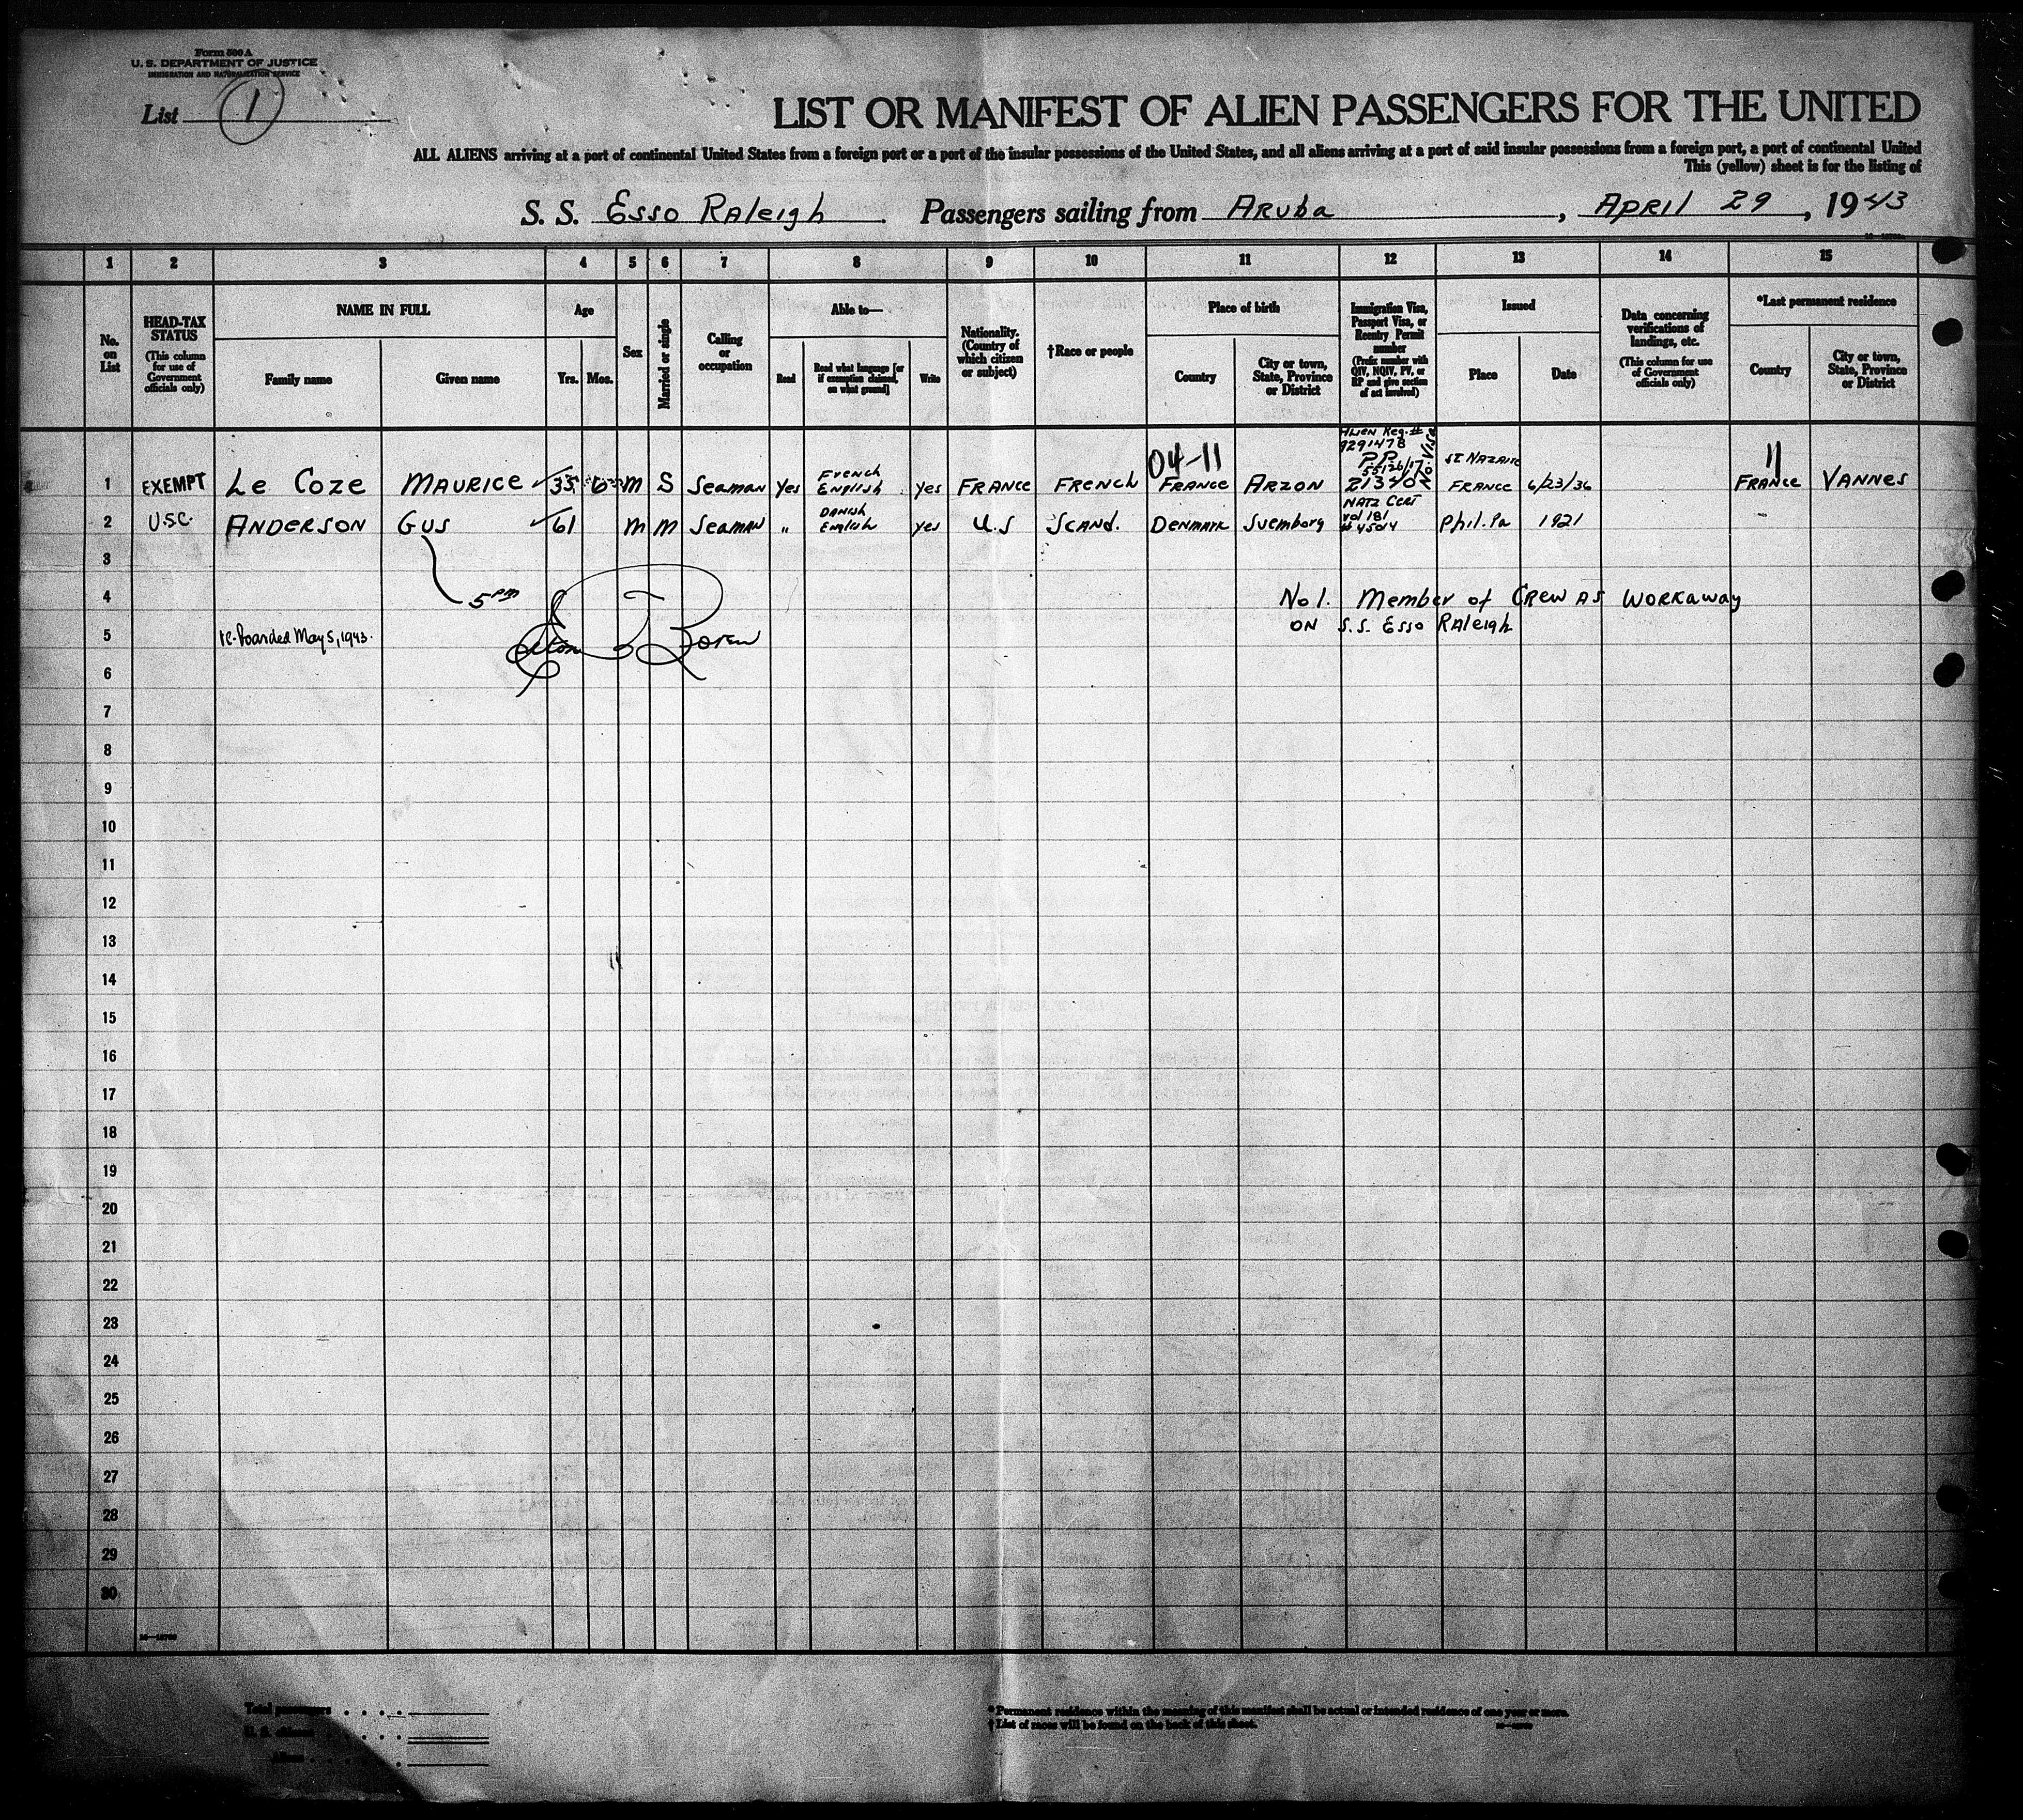 Form 500 A
U. S. DEPARTMENT OF JUSTICE
IMMIGRATION AND NATURALIZATION SERVICE
List 1
LIST OR MANIFEST OF ALIEN PASSENGERS FOR THE UNITED
ALL ALIENS arriving at a port of continental United States from a foreign port or a port of the insular possessions of the United States, and all aliens arriving at a port of said insular possessions from a foreign port, a port of continental United
This (yellow) sheet is for the listing of
S. S. Esso Raleigh Passengers sailing from Aruba, April 29, 1943
1 2 3 4 5 6 7 8 9 10 11 12 13 14 15
No. on List
HEAD-TAX STATUS
(This column for use of Government officials only)
NAME IN FULL
Family name
Given name
Age
Yrs. Mos.
Sex
Married or single
Calling or occupation
Able to—
Read
Read what language [or if exemption claimed, on what ground]
Write
Nationality. (Country of which citizen or subject)
†Race or people
Place of birth
Country
City or town, State, Province or District
Immigration Visa, Passport Visa, or Reentry Permit number
(Prefix number with QIV, NQIV, PV, or RP and give section of act involved)
Issued
Place
Date
Data concerning verifications of landings, etc.
(This column for use of Government officials only)
*Last permanent residence
Country
City or town, State, Province or District
Alien Reg. #
9291478
04-11 PP St Nazaire 11
French
1 EXEMPT Le Coze MAURICE 35 6 M S Seaman yes English yes FRANCE FRENCH FRANCE ARZON 213402 FRANCE 6/23/36 FRANCE VANNES
Danish NATZ CERT
vol 181
2 U.S.C. ANDERSON GUS 61 M M Seaman " English yes U.S SCAND. DENMARK Svemborg # 45014 Phil. Pa 1921 -
3
4 5 PM No 1. Member of Crew as Workaway
5 re-boarded May 5, 1943. ON S.S. Esso Raleigh
6
7
8
9
10
11
12
13
14
15
16
17
18
19
20
21
22
23
24
25
26
27
28
29
30
Total passengers
U. S. citizens
Aliens
*Permanent residence within the meaning of this manifest shall be actual or intended residence of one year or more.
†List of races will be found on the back of this sheet.